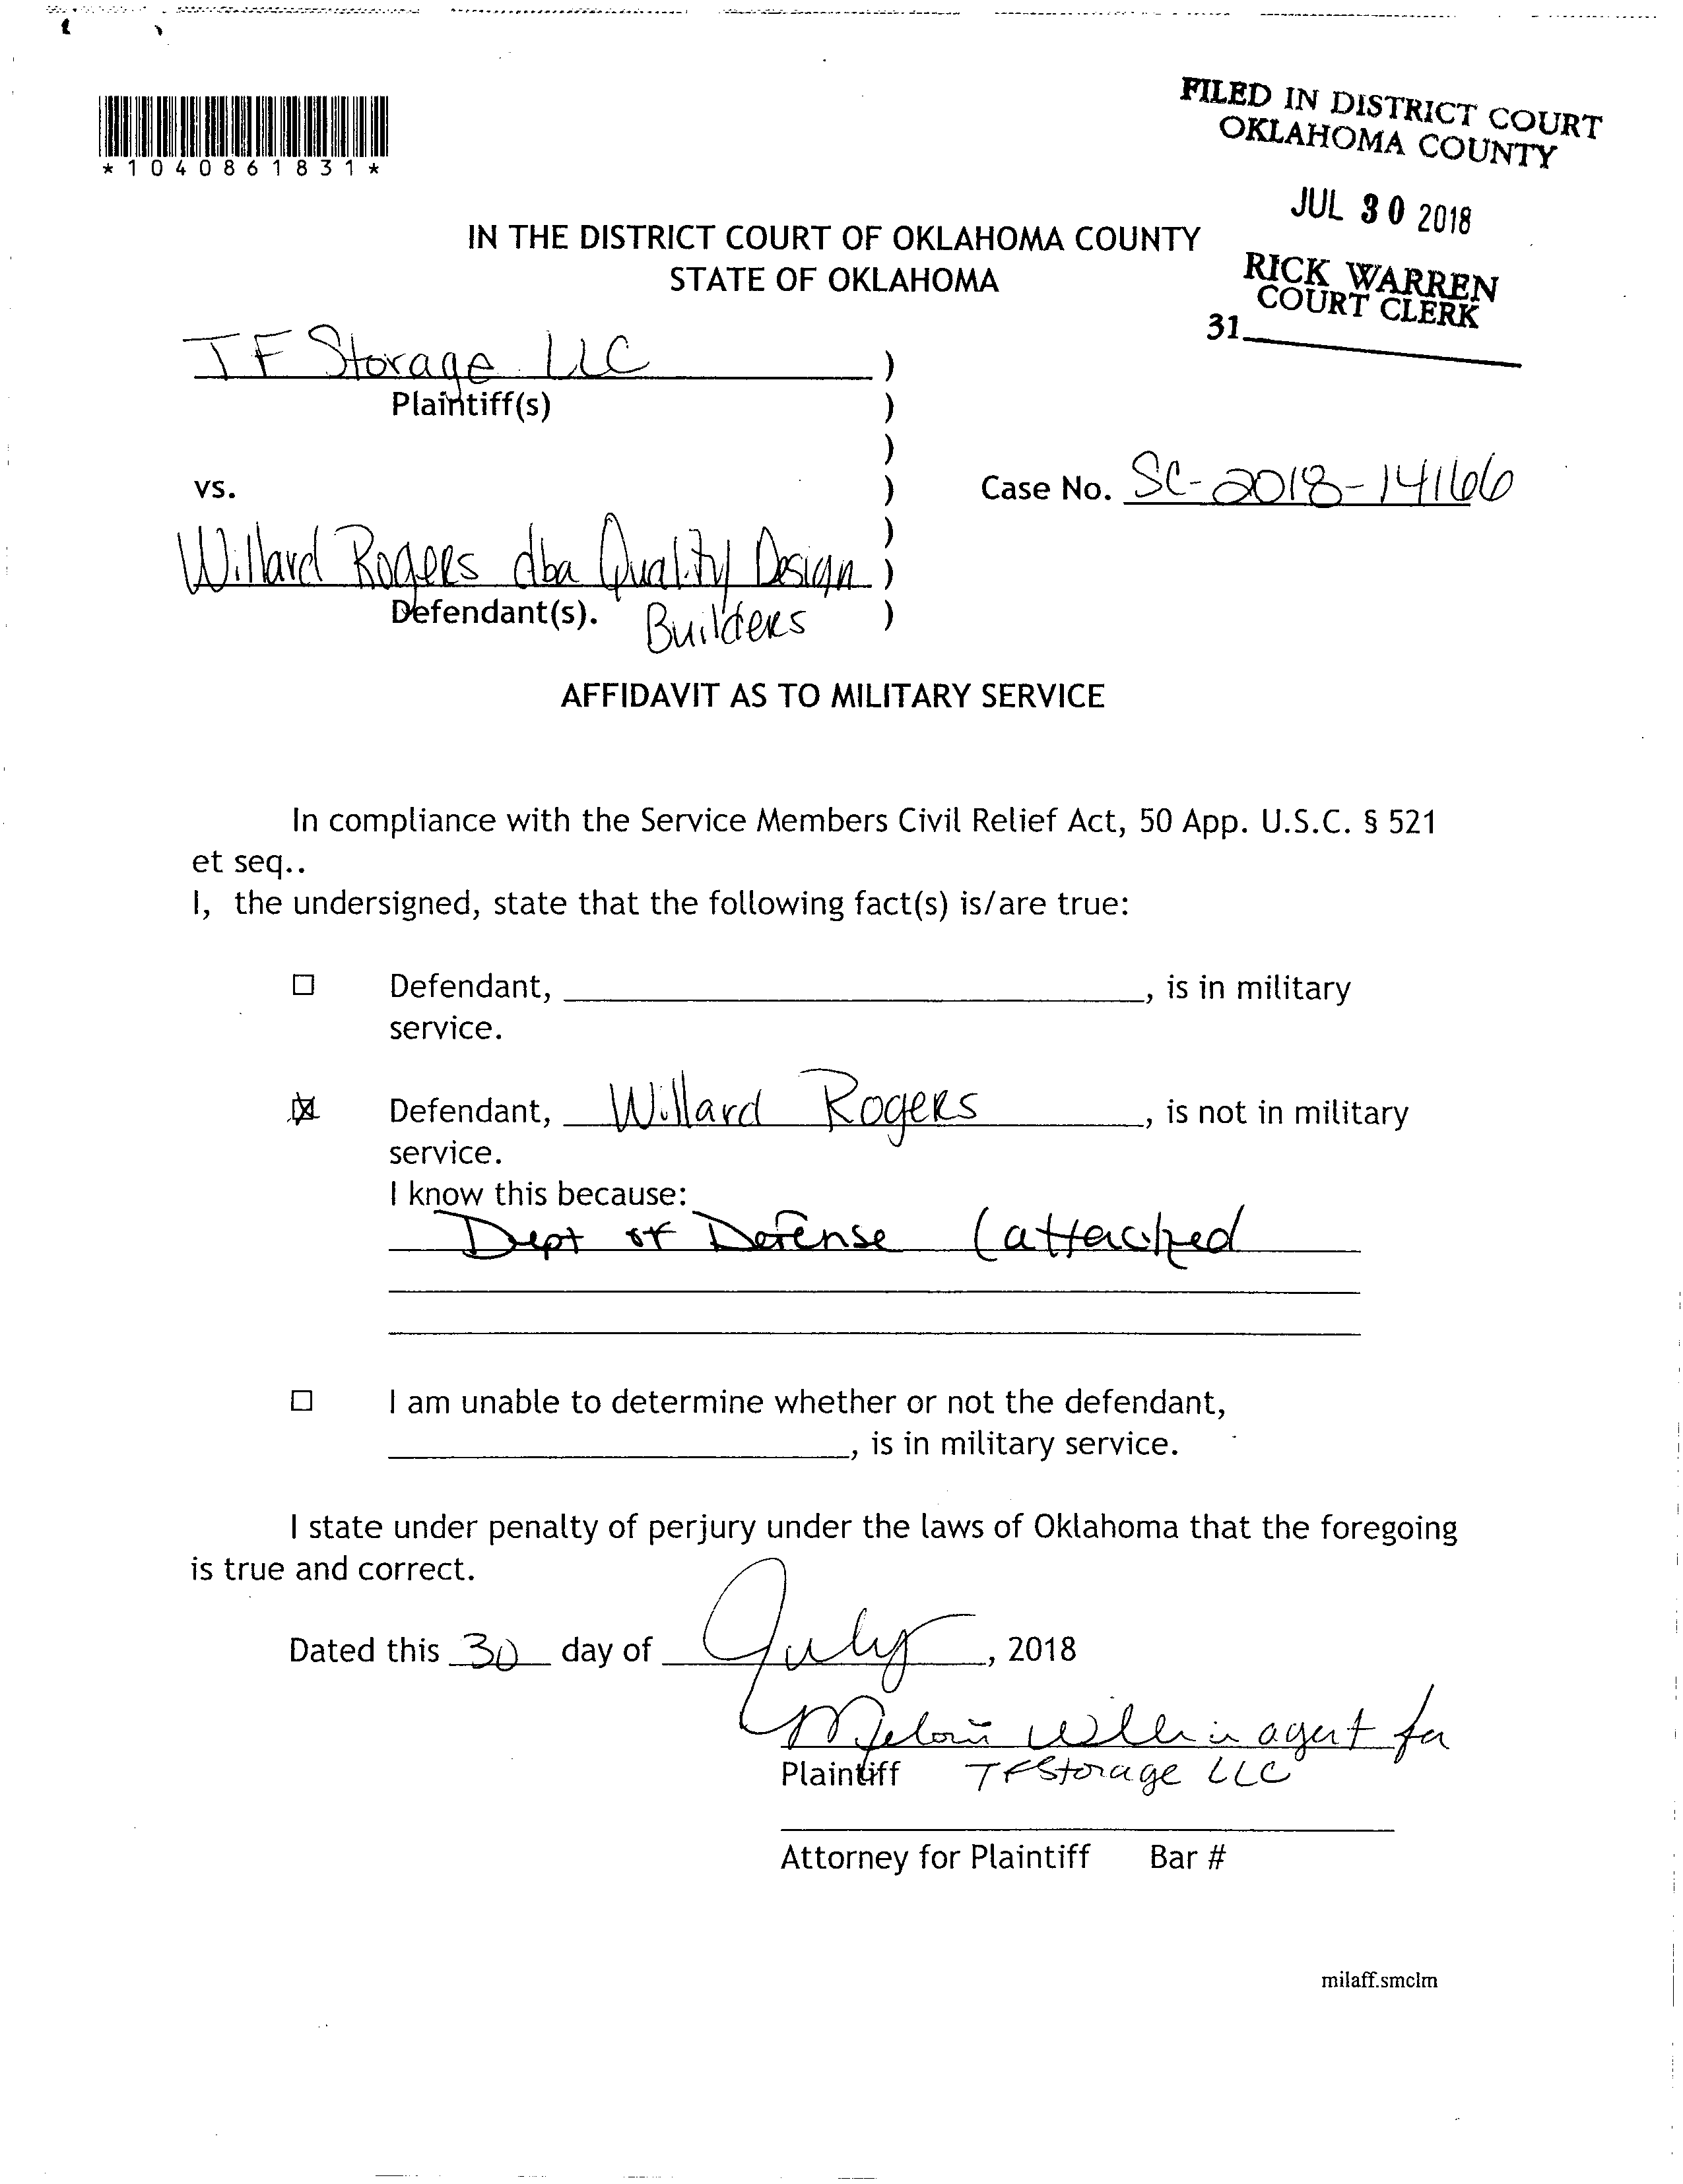 *1040861831*
FILED IN DISTRICT COURT
OKLAHOMA COUNTY
JUL 30 2018
RICK WARREN
COURT CLERK
31
IN THE DISTRICT COURT OF OKLAHOMA COUNTY
STATE OF OKLAHOMA
TF Storage LLC )
Plaintiff(s) )
)
vs. )
Case No. SC-2018-14166
)
Willard Rogers dba Quality Design )
Defendant(s). Builders )
AFFIDAVIT AS TO MILITARY SERVICE
In compliance with the Service Members Civil Relief Act, 50 App. U.S.C. § 521
et seq..
I, the undersigned, state that the following fact(s) is/are true:
☐ Defendant, ____, is in military
service.
☒ Defendant, Willard Rogers, is not in military
service.
I know this because:
Dept of Defense (attached
☐ I am unable to determine whether or not the defendant,
____, is in military service.
I state under penalty of perjury under the laws of Oklahoma that the foregoing
is true and correct.
Dated this 30 day of July, 2018
agent for
Plaintiff TFStorage LLC
Attorney for Plaintiff Bar #
milaff.smclm